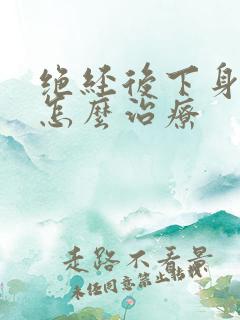 绝经後下身
怎麼治療
走路不看景
未经同意禁止转载